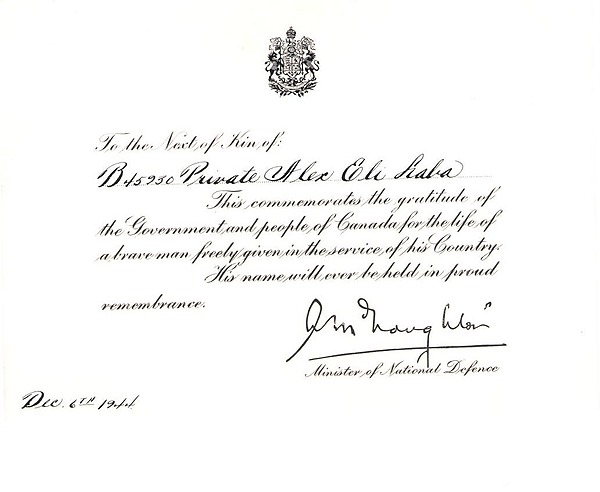 To the Next of Kin of:
B45950 Private Alex Eli
This commemorates the gratitude of
the Government and people of Canada for the life of
a brave man freely given in the service of his Country.
His name will ever be held in proud
remembrance.
Minister of National Defence
Dec. 6TH 1944